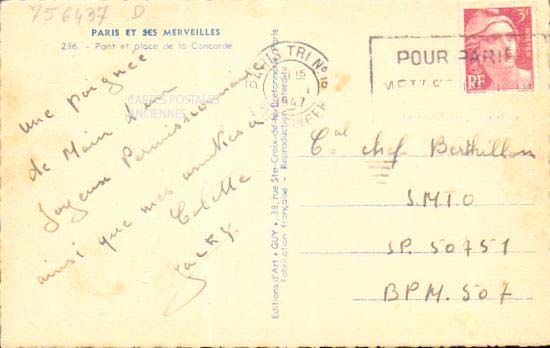 756437 D
PARIS ET SES MERVEILLES
236. - Pont et place de la Concorde
CARTES POSTALES
ANCIENNES
une poignée
de Main d'un
Joyeux Permissionnaire
ainsi que mes amitiés à
Colette
Jacky
Editions d'Art « GUY », 38, rue Ste-Croix-de-la-Bretonnerie, Paris
Fabrication française - Reproduction interdite
PARIS TRI Nº 18
15
1
1947
POUR PARIS
METTE
3F
POSTES
RF
Cal chef Berthillon
S.M.T.O
SP. 50751
BPM. 507